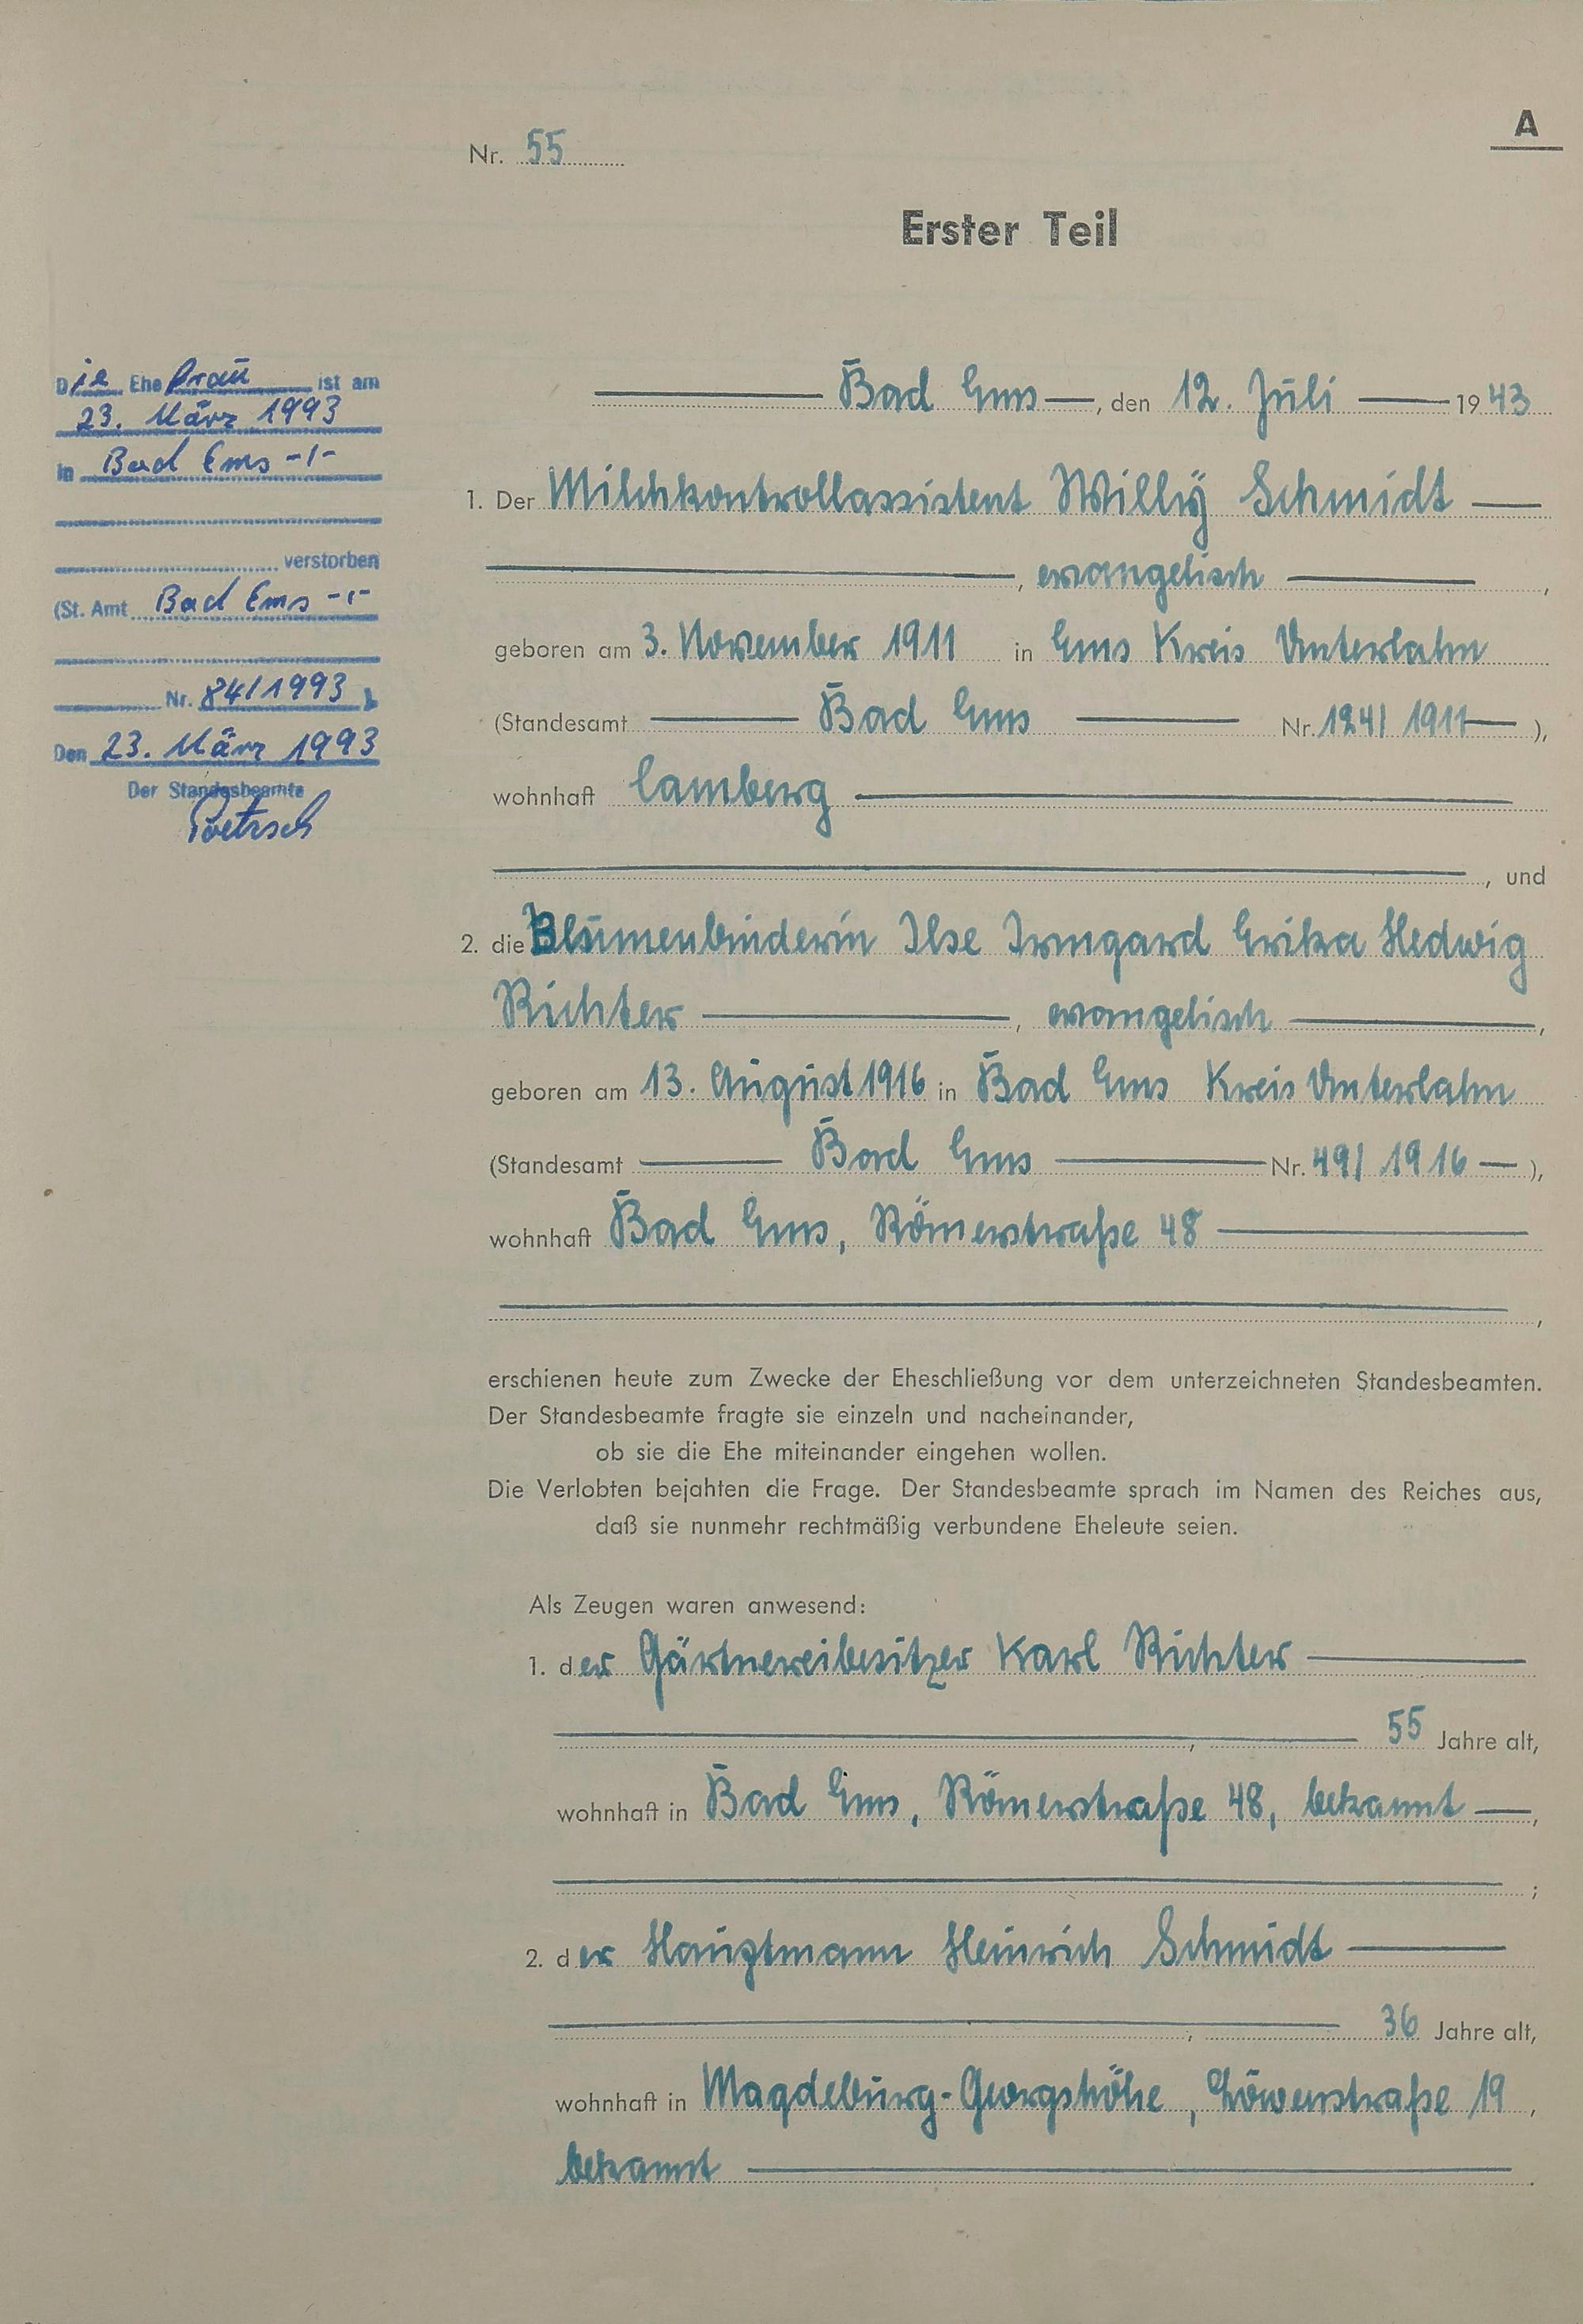 A
Nr. 55
Erster Teil
Die Ehefrau ist am
23. März 1993
in Bad Ems -/-
verstorben
(St. Amt Bad Ems -/-
Nr. 84/1993 ).
Den 23. März 1993
Der Standesbeamte
Bad Ems, den 12. Juli 1943
1. Der Milchkontrollassistent Willy Schmidt
, evangelisch ,
geboren am 3. November 1911 in Ems Kreis Unterlahn
(Standesamt Bad Ems Nr. 124/ 1911 ),
wohnhaft Camberg
, und
2. die Blumenbinderin Ilse Irmgard Erika Hedwig
Richter , evangelisch ,
geboren am 13. August 1916 in Bad Ems Kreis Unterlahn
(Standesamt Bad Ems Nr. 49/ 1916 ),
wohnhaft Bad Ems, Römerstraße 48
,
erschienen heute zum Zwecke der Eheschließung vor dem unterzeichneten Standesbeamten.
Der Standesbeamte fragte sie einzeln und nacheinander,
ob sie die Ehe miteinander eingehen wollen.
Die Verlobten bejahten die Frage. Der Standesbeamte sprach im Namen des Reiches aus,
daß sie nunmehr rechtmäßig verbundene Eheleute seien.
Als Zeugen waren anwesend:
1. der Gärtnereibesitzer Karl Richter
, 55 Jahre alt,
wohnhaft in Bad Ems, Römerstraße 48, bekannt ,
;
2. der Hauptmann Heinrich Schmidt
, 36 Jahre alt,
wohnhaft in Magdeburg-Georgshöhe, Löwenstraße 19,
bekannt .